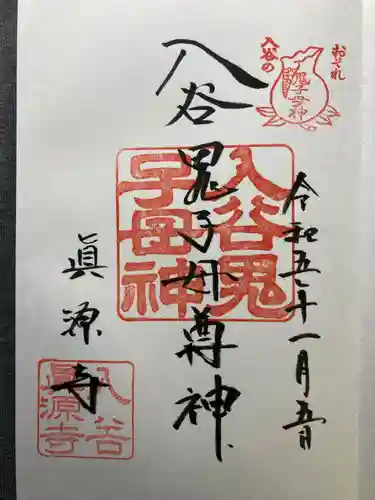 おそれ
入谷の
鬼子母神
令和五年十一月五日
入谷鬼子母尊神
入谷鬼
子母神
眞源寺
入谷
眞源寺